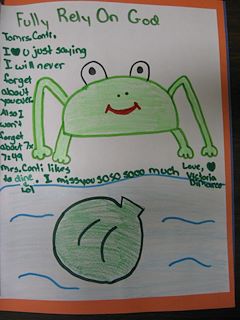 Fully Rely On God
To mrs. Conti,
I ♥ u just saying
I will never
forget
about
you ever.
Also I
won't
forget
about 7x
7=49
mrs. Conti likes
to dine
lol
. I miss you so so sooo much
Love, ♥
Victoria